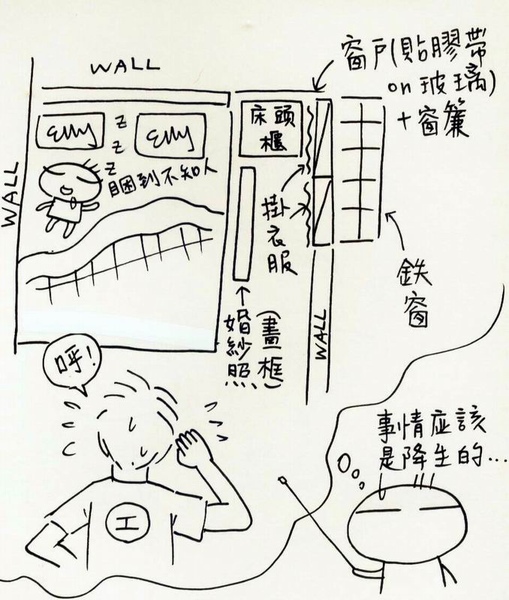 WALL
窗戶(貼膠帶
on 玻璃)
+窗簾
床頭
櫃
z
z
z
睏到不知人
WALL
掛衣服
鉄窗
婚紗照
(畫框)
WALL
呼!
工
事情应該
是降生的...